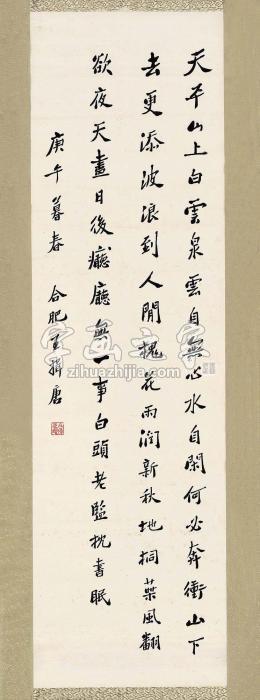 天平山上白雲泉雲自無心水自閑何必奔衝山下
去更添波浪到人閒槐花雨潤新秋地桐葉風翻
欲夜天盡日後廳無一事白頭老監枕書眠
庚午暮春 合肥王揖唐
字画之家
zihuazhijia.com